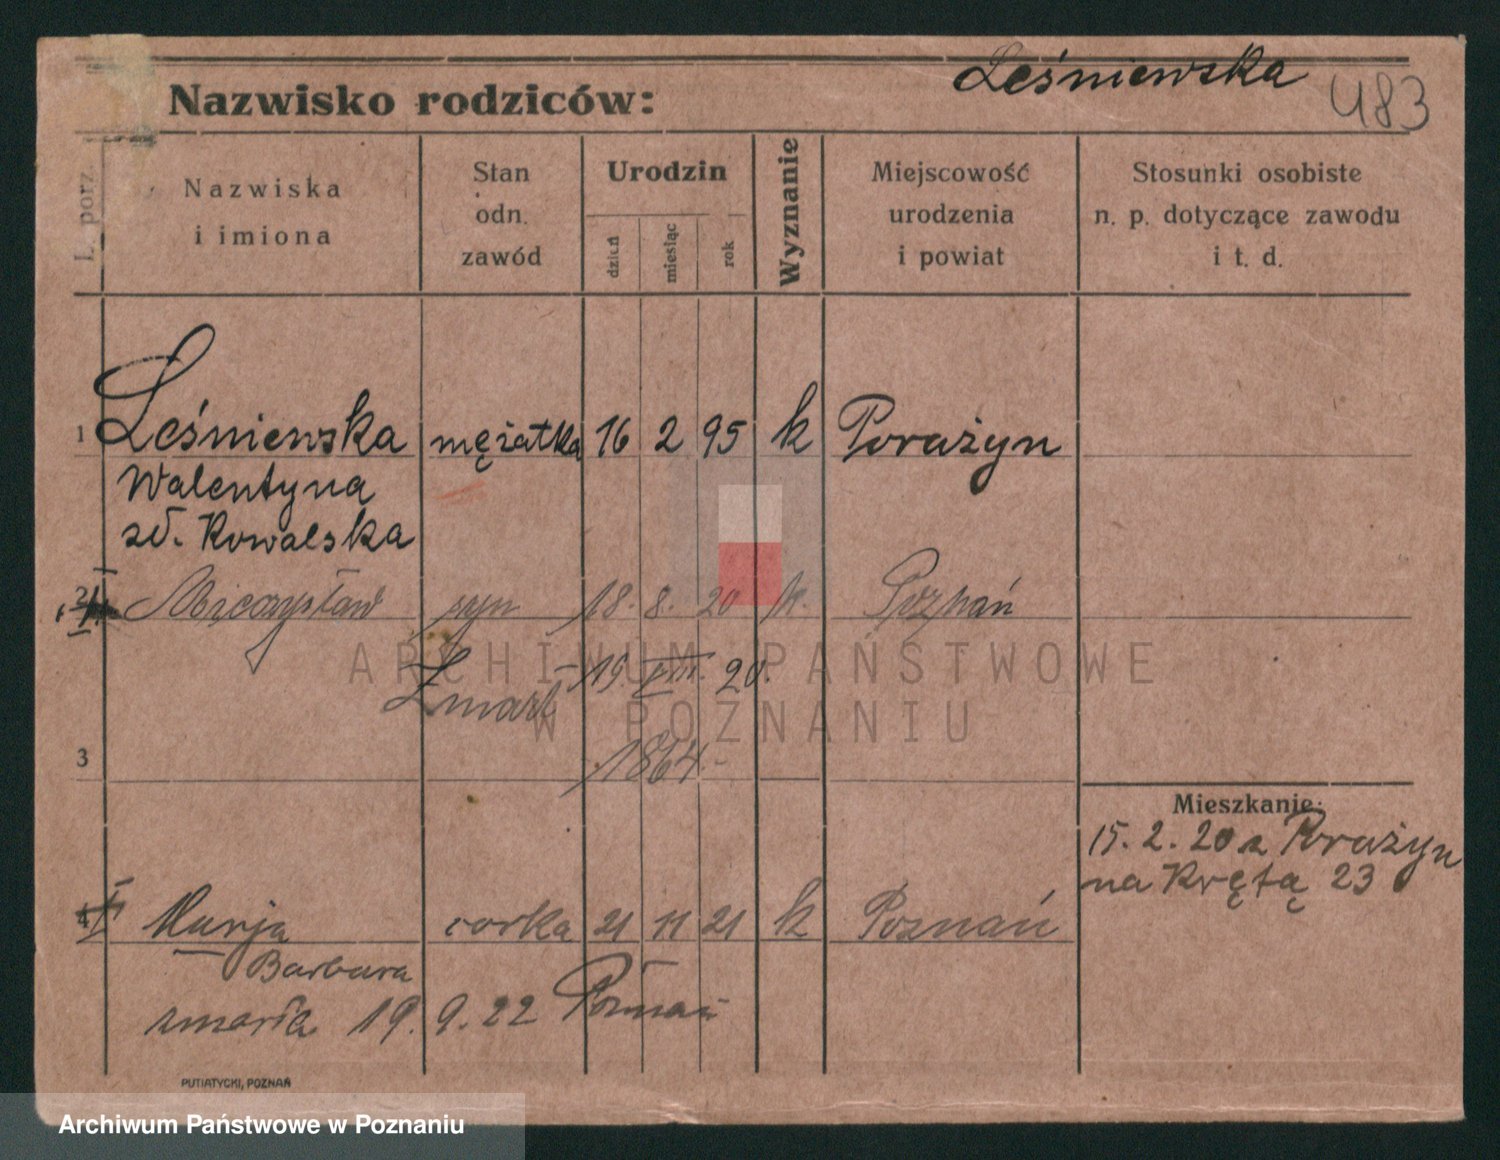 Leśniewska
483
Nazwisko rodziców:
L. porz.
Nazwiska
i imiona
Stan
odn.
zawód
Urodzin
dzień
miesiąc
rok
Wyznanie
Miejscowość
urodzenia
i powiat
Stosunki osobiste
n. p. dotyczące zawodu
i t. d.
1 Leśniewska mężatka 16 2 95 k Porażyn
Walentyna
zd. Kowalska
2 I Mieczysław syn 18. 8. 20 k. Poznań
Zmarł – 19. VIII. 20.
1864.-
3
Mieszkanie:
15. 2. 20 z Porażyn
na Krętą 23
4 II Marja córka 21 11 21 k Poznań
Barbara
zmarła 19. 9. 22 Poznań
PUTIATYCKI, POZNAŃ
ARCHIWUM PAŃSTWOWE
W POZNANIU
Archiwum Państwowe w Poznaniu